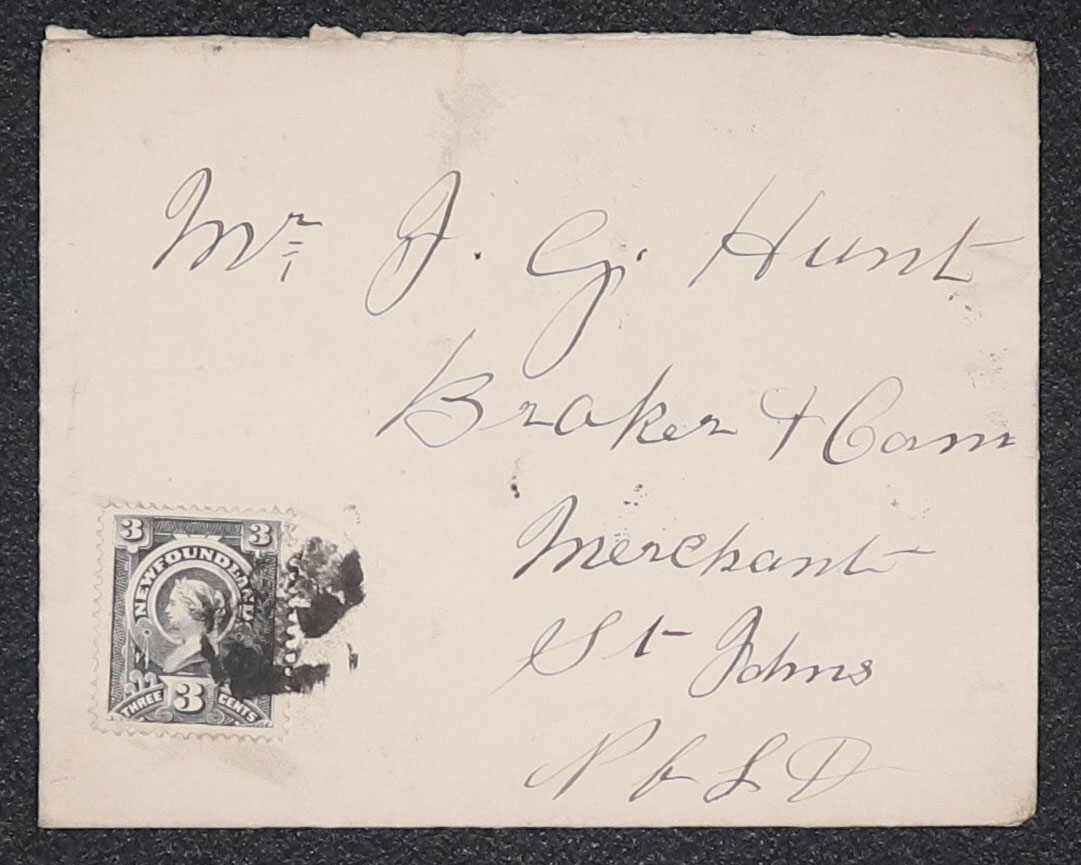 Mr. J. G. Hunt
Broker & Com
Merchant
St Johns
NfLD
3 3
NEWFOUNDLAND
THREE 3 CENTS